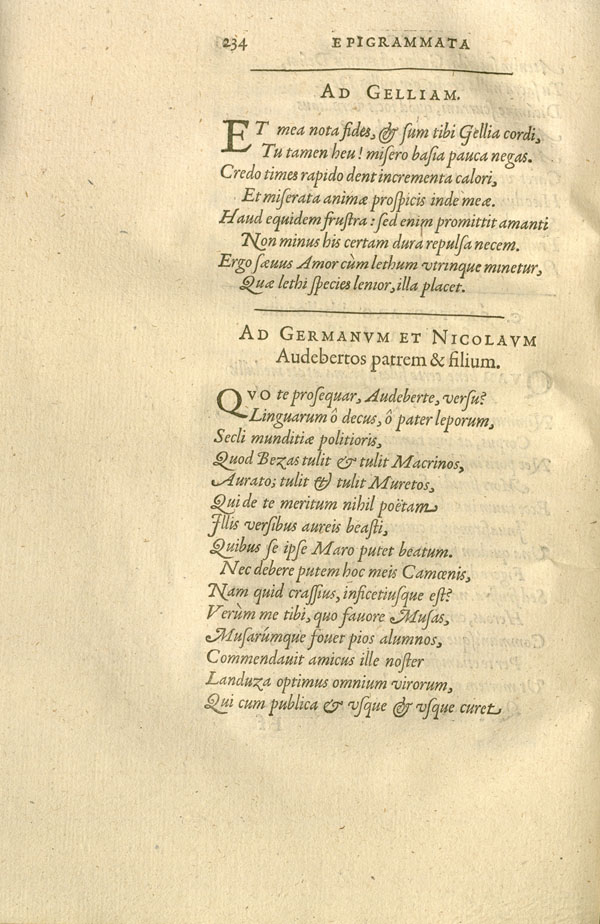 234 EPIGRAMMATA
AD GELLIAM.
ET mea nota fides, & ſum tibi Gellia cordi,
Tu tamen heu! miſero baſia pauca negas.
Credo times rapido dent incrementa calori,
Et miſerata animæ proſpicis inde meæ.
Haud equidem fruſtra: ſed enim promittit amanti
Non minus his certam dura repulſa necem.
Ergo ſæuus Amor cùm lethum vtrinque minetur,
Quæ lethi ſpecies lenior, illa placet.
AD GERMANVM ET NICOLAVM
Audebertos patrem & filium.
QVO te proſequar, Audeberte, verſu?
Linguarum ô decus, ô pater leporum,
Secli munditiæ politioris,
Quod Bezas tulit & tulit Macrinos,
Aurato; tulit & tulit Muretos,
Qui de te meritum nihil poëtam
Illis verſibus aureis beaſti,
Quibus ſe ipſe Maro putet beatum.
Nec debere putem hoc meis Camœnis,
Nam quid craſſius, inficetiuſque eſt?
Verùm me tibi, quo fauore Muſas,
Muſarúmque fouet pios alumnos,
Commendauit amicus ille noſter
Landuza optimus omnium virorum,
Qui cum publica & vſque & vſque curet